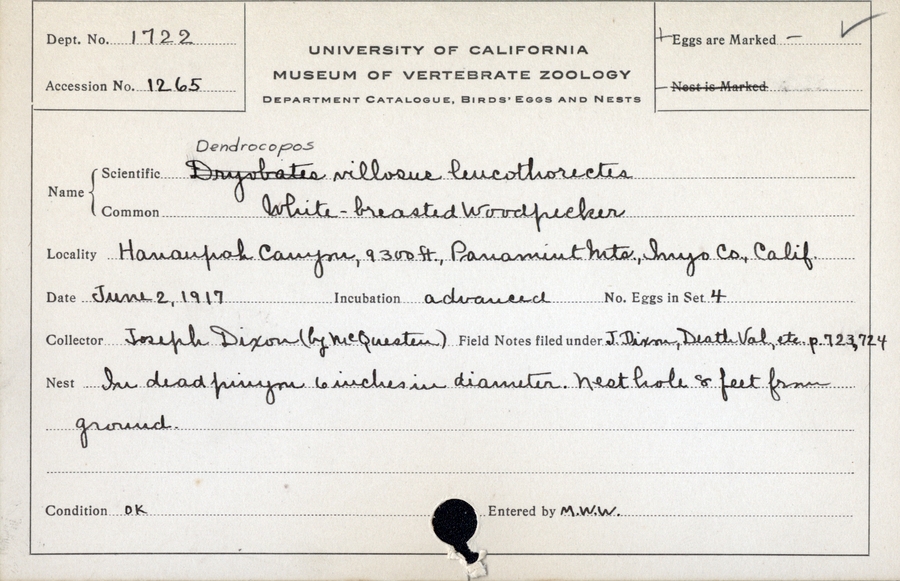 Dept. No. 1722
Accession No. 1265
UNIVERSITY OF CALIFORNIA
MUSEUM OF VERTEBRATE ZOOLOGY
DEPARTMENT CATALOGUE, BIRDS' EGGS AND NESTS
+ Eggs are Marked – ✓
– Nest is Marked
Dendrocopos
Name { Scientific Dryobates villosus leucothorectes
Common White-breasted Woodpecker
Locality Hanaupah Canyon, 9300 ft., Panamint Mts., Inyo Co., Calif.
Date June 2, 1917 Incubation advanced No. Eggs in Set 4
Collector Joseph Dixon (by McQuesten) Field Notes filed under J. Dixon, Death Val, etc. p. 723, 724
Nest In dead pinyon 6 inches in diameter. Nest hole 8 feet from
ground.
Condition OK Entered by M.W.W.